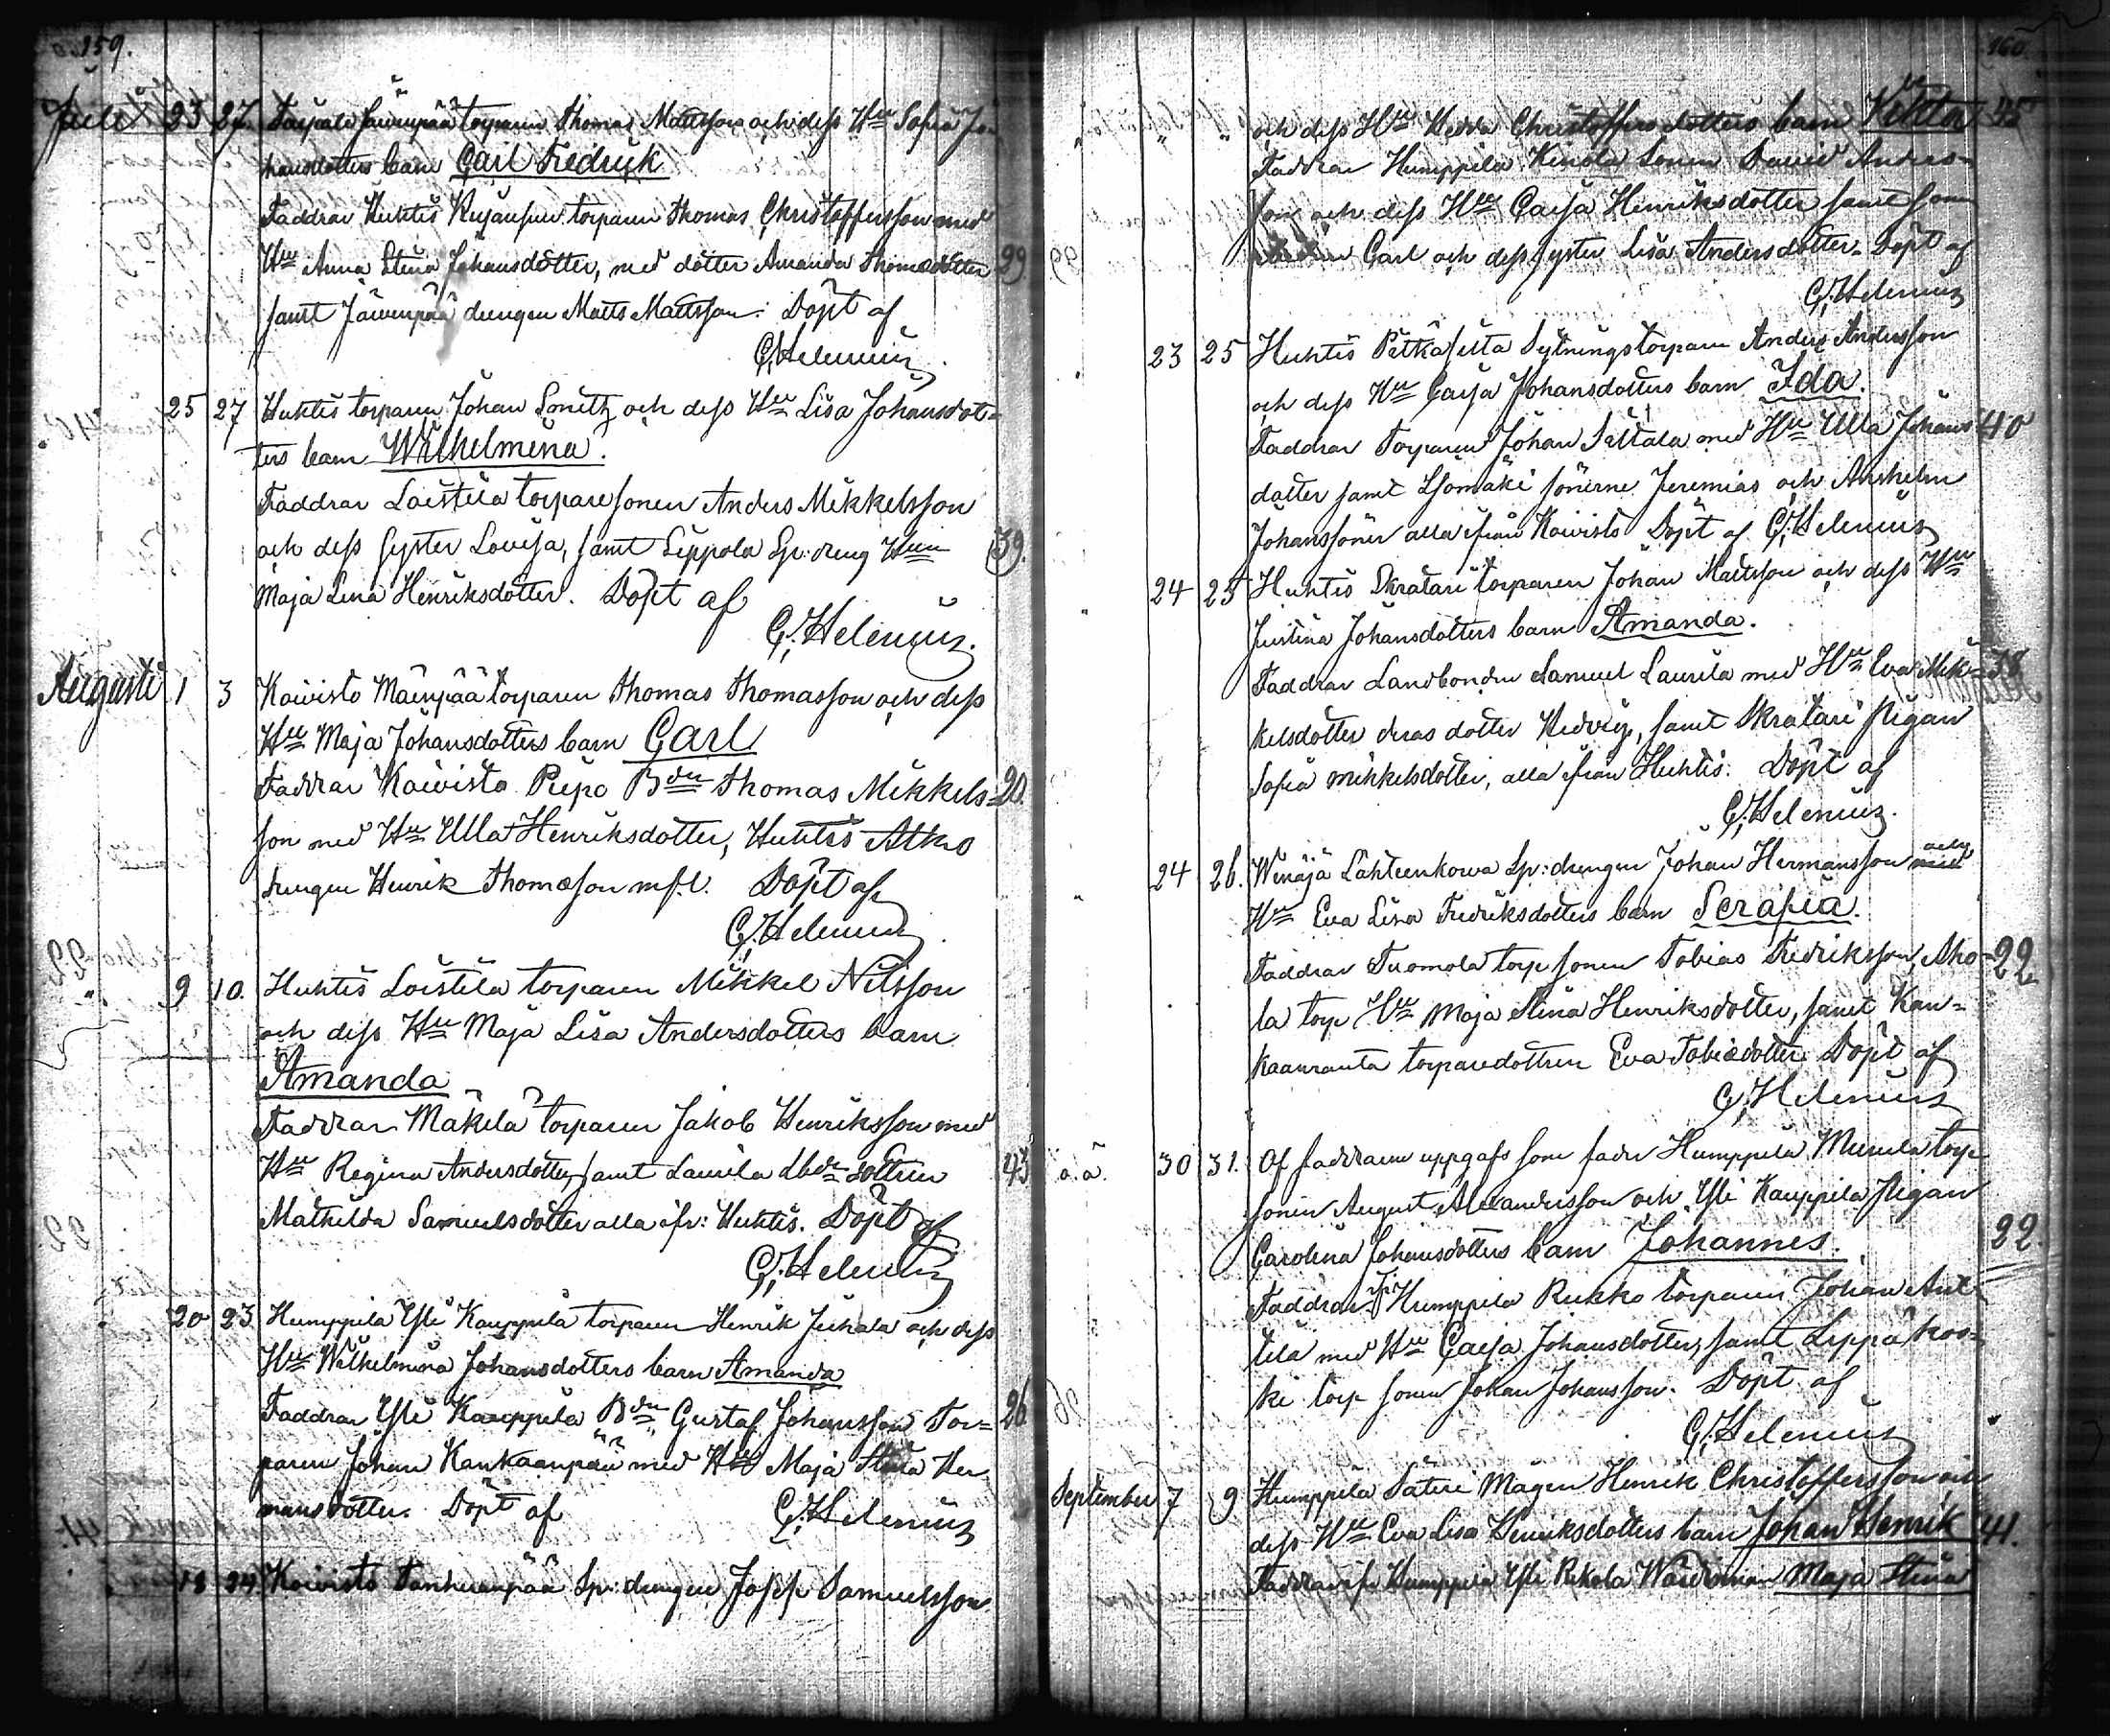 159.
Julii 23 27. Järvenpää torparen Thomas Mattsson och dess Hru Sofia Jo-
hansdotters barn Carl Fredrik
Faddrar Huhtis Kujanpää torparen Thomas Christoffersson med
Hru Anna Stina Johansdotter, med dotter Amanda Thomædotter 29
samt Järvenpää drengen Matts Mattsson. Döpt af
G. Helenius
25 27 Huhtis torparen Johan Lonitz och dess Hru Lisa Johansdot-
ters barn Wilhelmina.
Faddrar Loistila torparesonen Anders Mikkelsson
och dess syster Lovisa, samt Seppola Sp: dreng Hrun 39.
Maja Lena Henriksdotter. Döpt af
G. Helenius.
Augusti 1 3 Koivisto Mäenpää torparen Thomas Thomasson och dess
Hru Maja Johansdotters barn Carl
Faddrar Koivisto Piipo Bdn Thomas Mikkels- 20.
son med Hru Ulla Henriksdotter, Huhtis Atko
drengen Henrik Thomæson m.fl. Döpt af
G. Helenius
9 10. Huhtis Loistila torparen Mikkel Nilsson
och dess Hru Maja Lisa Andersdotters barn
Amanda
Faddrar Mäkelä torparen Jakob Henriksson med
Hru Regina Andersdotter, samt Laurila Lbdr dottren 43
Mathilda Samuelsdotter alla ifr: Huhtis. Döpt af
G. Helenius
20 23 Humppila Yli Kauppila torparen Henrik Juhala och dess
Hru Wilhelmina Johansdotters barn Amanda
Faddrar Yli Kauppila Bdn Gustaf Johansson Tor- 26
paren Johan Kankaanpää med Hru Maja Stina Her
mansdotter. Döpt af G. Helenius
18 24. Koivisto Tanhuanpää Sp: drengen Josef Samuelsson
160.
och dess Hru Hedda Christoffersdotters barn Viktor 35
Faddrar Humppila Kinola Sonen David Anders-
son och dess Hru Caisa Henriksdotter samt
Carl och dess syster Lisa Andersdotter. Döpt af
G. Helenius
23 25 Huhtis Pitkäsilta Sytningstorparen Anders Andersson
och dess Hru Caisa Johansdotters barn Ida.
Faddrar Torparen Johan Sillala med Hru Ulla Johans 40
dotter samt Isomäki sönerne Jeremias och Anshelm
Johanssöner alla ifrån Koivisto Döpt af G. Helenius
24 25 Huhtis Skratari torparen Johan Mattsson och dess Hru
Justina Johansdotters barn Amanda.
Faddrar Landbonden Samuel Laurila med Hru Eva Mik- 38
kelsdotter deras dotter Hedvig, samt Skratari pigan
Sofia Mikkelsdotter, alla ifrån Huhtis. Döpt af
G. Helenius.
24 26. Wenäjä Lähteenkorva Sp: drengen Johan Hermansson och
Hru Eva Lisa Fredriksdotters barn Serafia.
Faddrar Tuomola torp sonen Tobias Fredriksson, Aho- 22
la torp Hru Maja Stina Henriksdotter, samt Kan-
kaanranta torparedottren Eva Tobiædotter Döpt af
G. Helenius
o.ä. 30 31. Af faddrarne uppgafs som fader Humppila Murula torp
sonen August Alexandersson och Yli Kauppila pigan
Carolina Johansdotters barn Johannes. 22.
Faddrar ifr Humppila Rukko torparen Johan Ant-
tila med Hru Caisa Johansdotter, samt Leppäkos-
ki torp sonen Johan Johansson. Döpt af
G. Helenius
September 7 9 Humppila Säteri Mågen Henrik Christoffersson och
dess Hru Eva Lisa Henriksdotters barn Johan Henrik 41.
Faddrar ifr Humppila Yli Rekola Wärdinnan Maja Stina